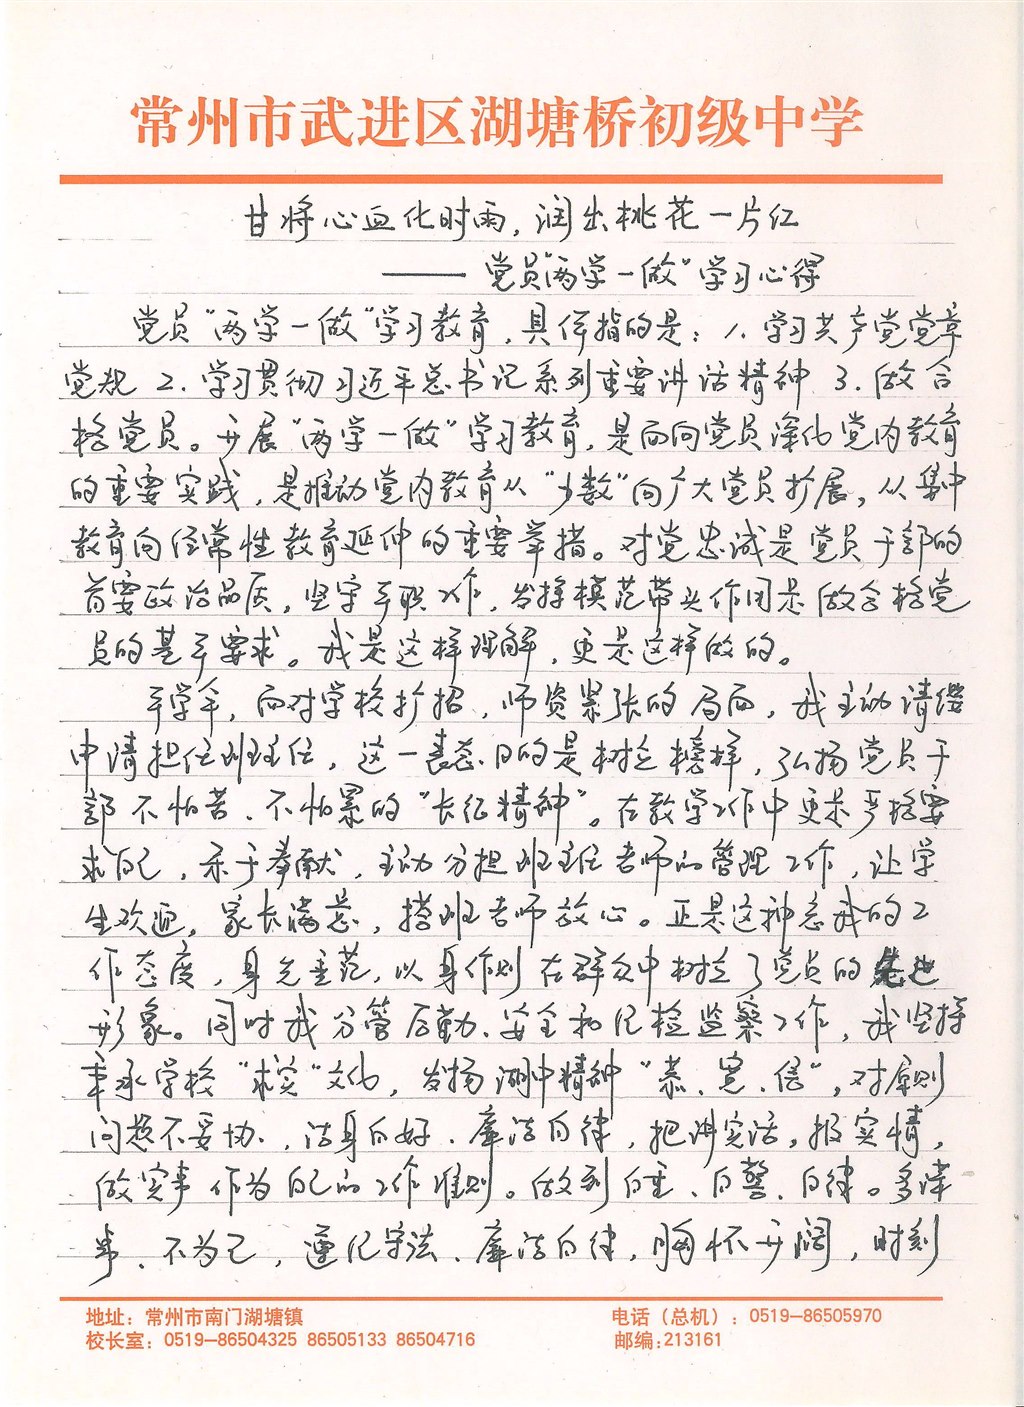 常州市武进区湖塘桥初级中学
甘将心血化时雨，润出桃花一片红
——党员“两学一做”学习心得
党员“两学一做”学习教育，具体指的是：1. 学习共产党党章
党规 2. 学习贯彻习近平总书记系列重要讲话精神 3. 做合
格党员。开展“两学一做”学习教育，是面向党员深化党内教育
的重要实践，是推动党内教育从“少数”向广大党员扩展，从集中
教育向经常性教育延伸的重要举措。对党忠诚是党员干部的
首要政治品质，坚守本职工作，发挥模范带头作用是做合格党
员的基本要求。我是这样理解，更是这样做的。
本学年，面对学校扩招，师资紧张的局面，我主动请缨
申请担任班主任，这一表态目的是树立榜样，弘扬党员干
部不怕苦、不怕累的“长征精神”。在教学工作中更是严格要
求自己，乐于奉献，主动分担班主任老师的管理工作，让学
生欢迎，家长满意，搭班老师放心。正是这种忘我的工
作态度，身先垂范，以身作则在群众中树立了党员的先进
形象。同时我分管后勤、安全和纪检监察工作，我坚持
秉承学校“求实”文化，发扬湖中精神“慕、宽、信”，对原则
问题不妥协，洁身自好、廉洁自律，把讲实话，报实情，
做实事作为自己的工作准则。做到自重、自警、自律。多谋
事、不为己，遵纪守法、廉洁自律，胸怀开阔，时刻
地址：常州市南门湖塘镇 电话（总机）：0519-86505970
校长室：0519-86504325 86505133 86504716 邮编:213161